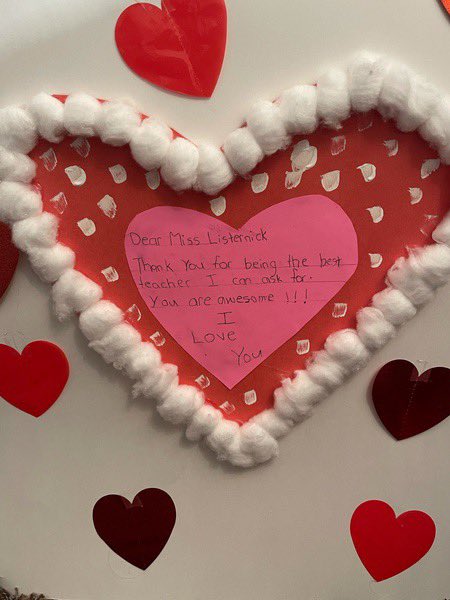 Dear Miss Listernick
Thank You for being the best
teacher I can ask for.
You are awesome !!!
I
Love
You